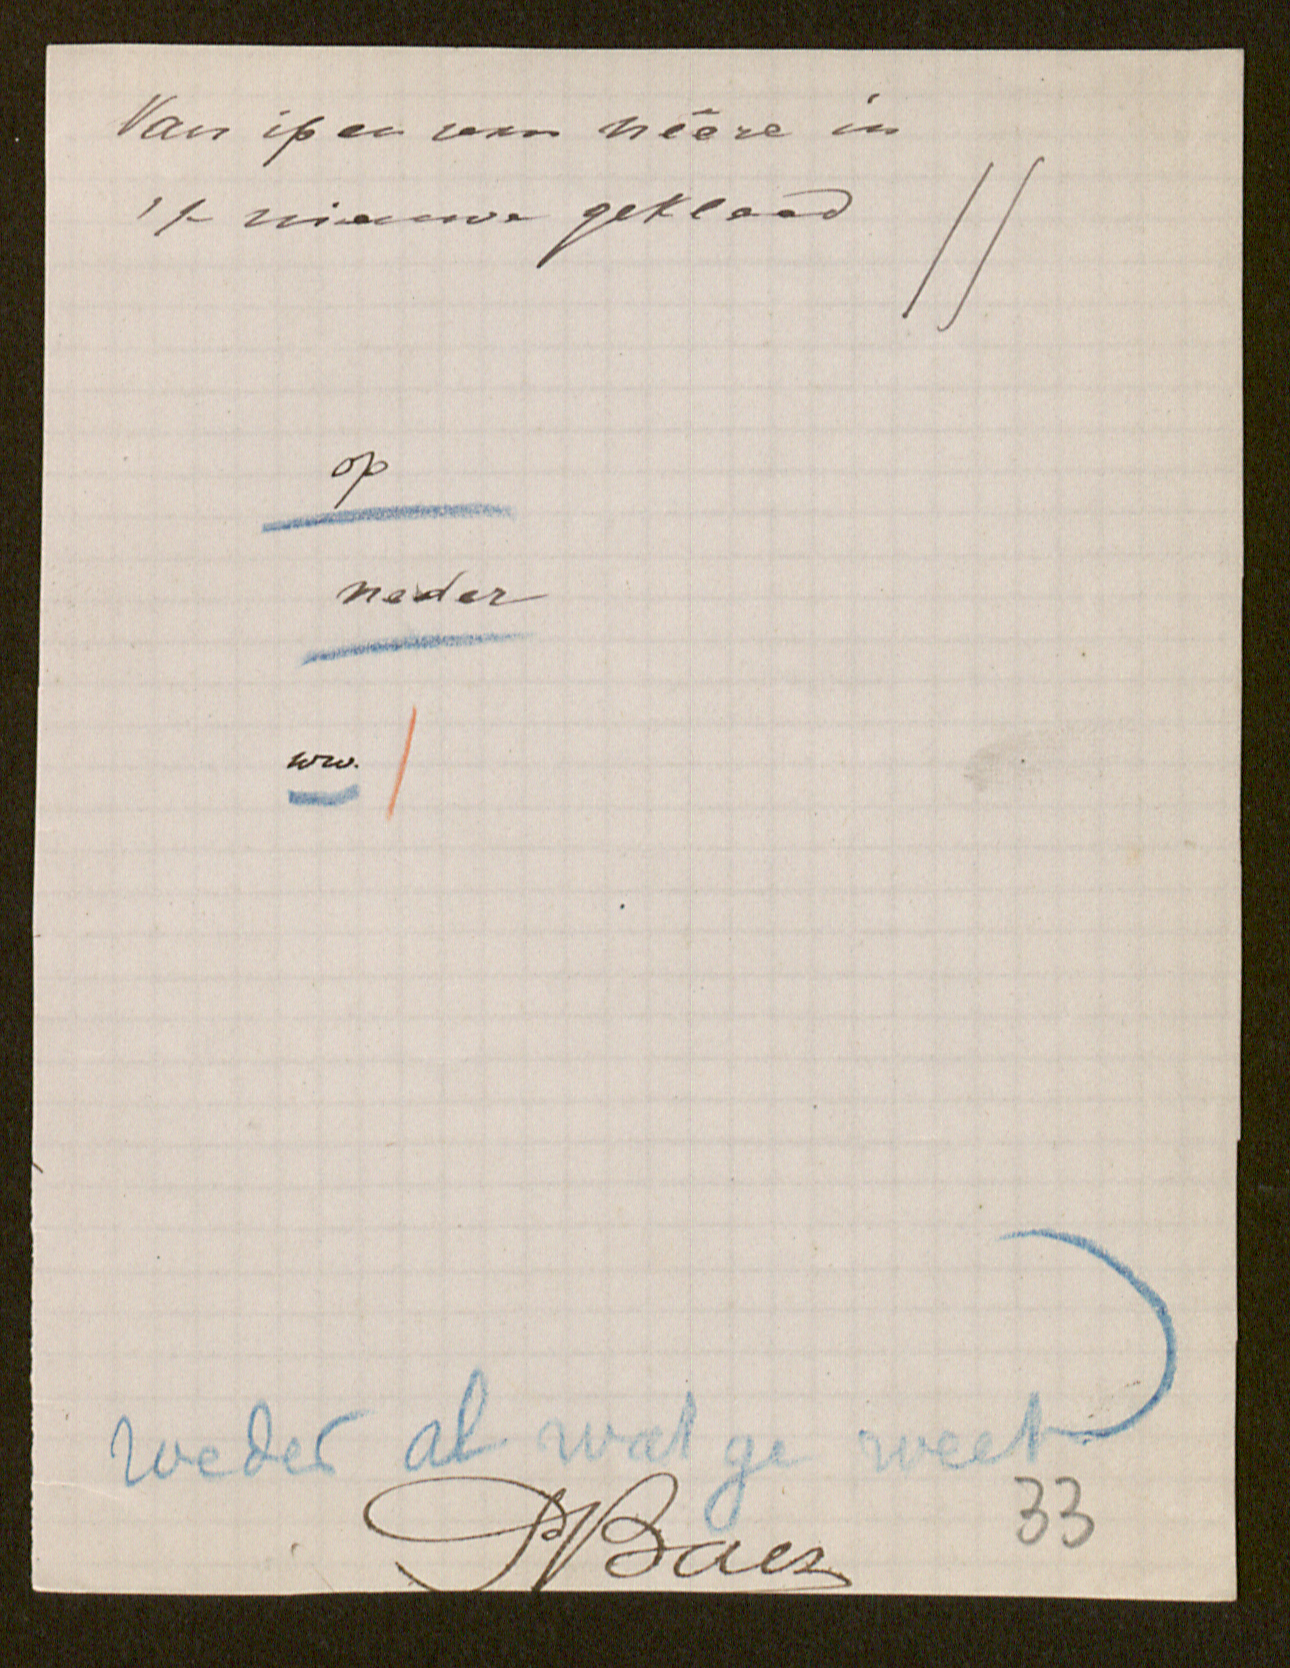 Van ip en van nêere in
't nieuwe gekleed
op
neder
ww.
weder al wat ge weet
33
Baes